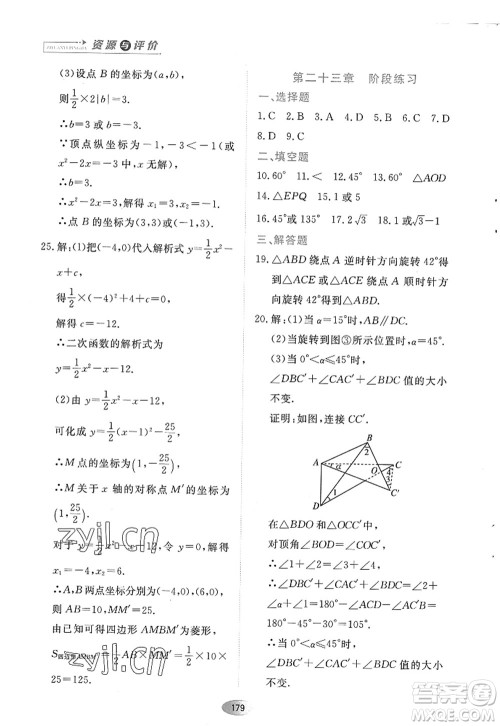 资源与评价
ZIYUANYUPINGJIA
(3)设点 B 的坐标为(a,b),
则 1/2×2×|b|=3.
∴b=±3.
∵顶点纵坐标为-1,-3<-1(或
x²-2x=-3中,x 无解)
∴b=3.
∴x²-2x=3,解得 x₁=3,x₂=-1.
∴点 B 的坐标为(3,3)或(-1,3).
25.解:(1)把(-4,0)代入解析式 y=1/2x²
-x+c,
得 0=1/2×(-4)²-(-4)+c,
解得 c=-12.
∴二次函数的解析式为
y=1/2x²-x-12.
(2)由 y=1/2x²-x-12,
可化成 y=1/2(x-1)²-25/2,
∴M 点的坐标为(1,-25/2).
∴M 关于 x 轴的对称点 M′的坐标为
(1,25/2).
对于 y=1/2x²-x-12,当 y=0 时,解得
x₁=-4,x₂=6.
∴A,B 两点坐标分别为(-4,0),(6,0).
∴AB=10,MM′=25.
由已知可得四边形 AMBM′为菱形,
S四边形AMBM′=1/2AB×MM′=1/2×10×
25=125.
第二十三章 阶段练习
一、选择题
1.C 2.D 3.C 4.B 5.B 6.C
7.D 8.D 9.C
二、填空题
10.60° 11.< 12.45° 13.60° △AOD
14.△EPQ 15.1或5
16.45°或135° 17.2√3 18.√3-1
三、解答题
19.△ABD 绕点 A 逆时针方向旋转 42°得
到△ACE 或△ACE 绕点 A 顺时针方
向旋转 42°得到△ABD.
20.解:(1)当 α=15°时,AB∥DC.
(2)当旋转到图③所示位置时,α=45°.
(3)当 0°<α≤45°时,
∠DBC′+∠CAC′+∠BDC 值的大小
不变.
证明:如图,连接 CC′.
B
2
A
α
O
C
3
4
C′
1
D
∵在△BDO 和△OCC′中,
对顶角∠BOD=∠COC′,
∴∠1+∠2=∠3+∠4.
∴∠DBC′+∠CAC′+∠BDC=
180°-45°-30°=105°.
∴当 0°<α≤45°时,
∠DBC′+∠CAC′+∠BDC 值的大小
不变.
179
zyjl.cn
zyjl.cn
答案圈
MXQE.COM